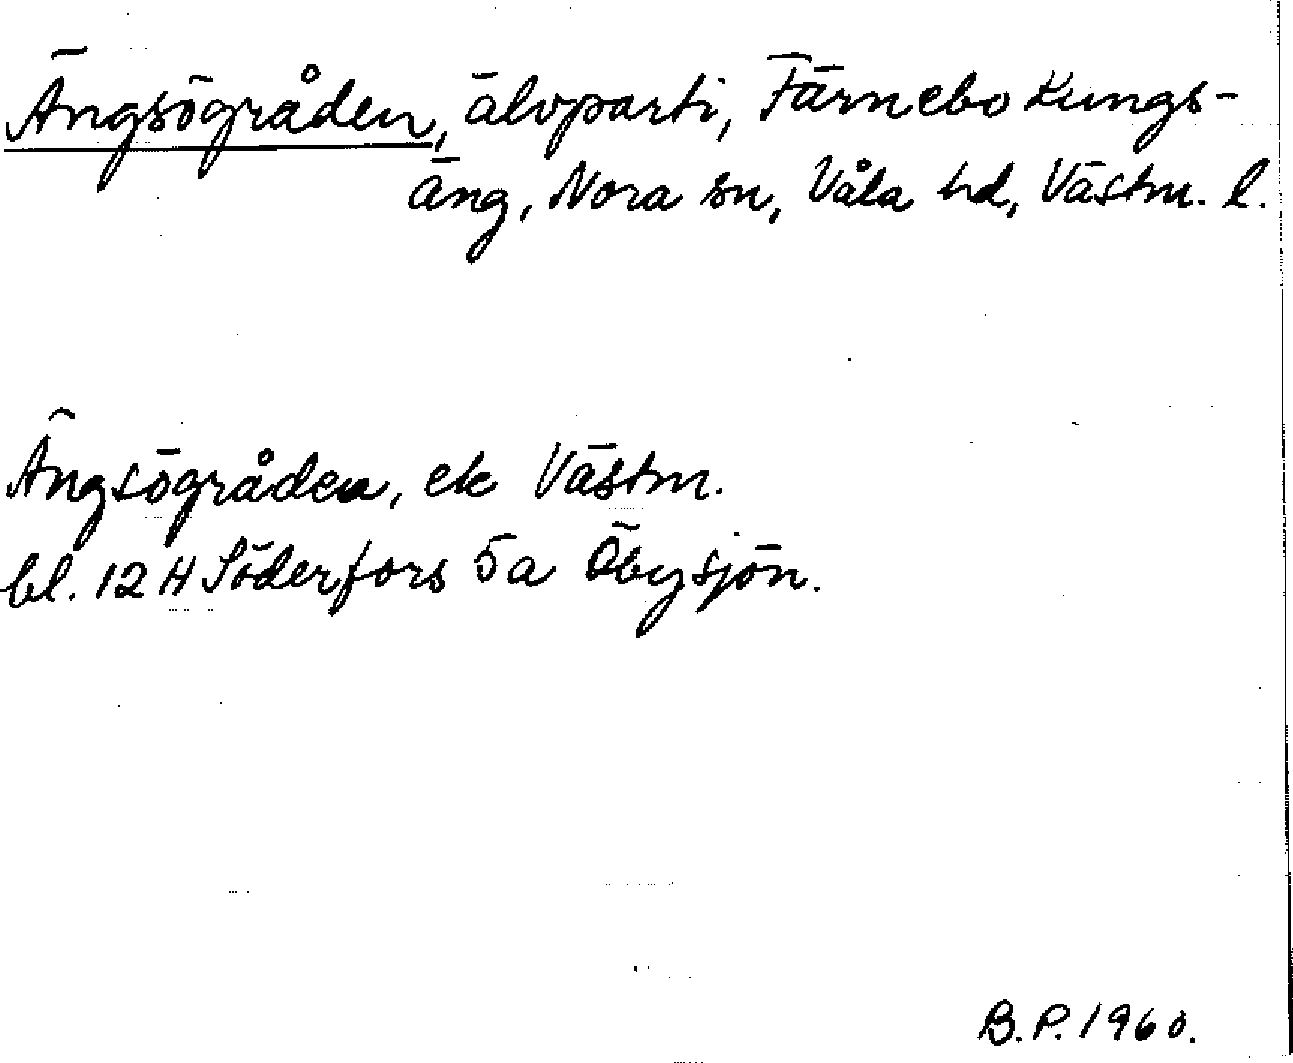 Ängsögråden, älvparti, Färnebo Kungs-
äng, Nora sn, Våla hd, Västm. l.
Ängsögråden, ek Västm.
bl. 12 H Söderfors 5a Öbysjön.
B.P. 1960.